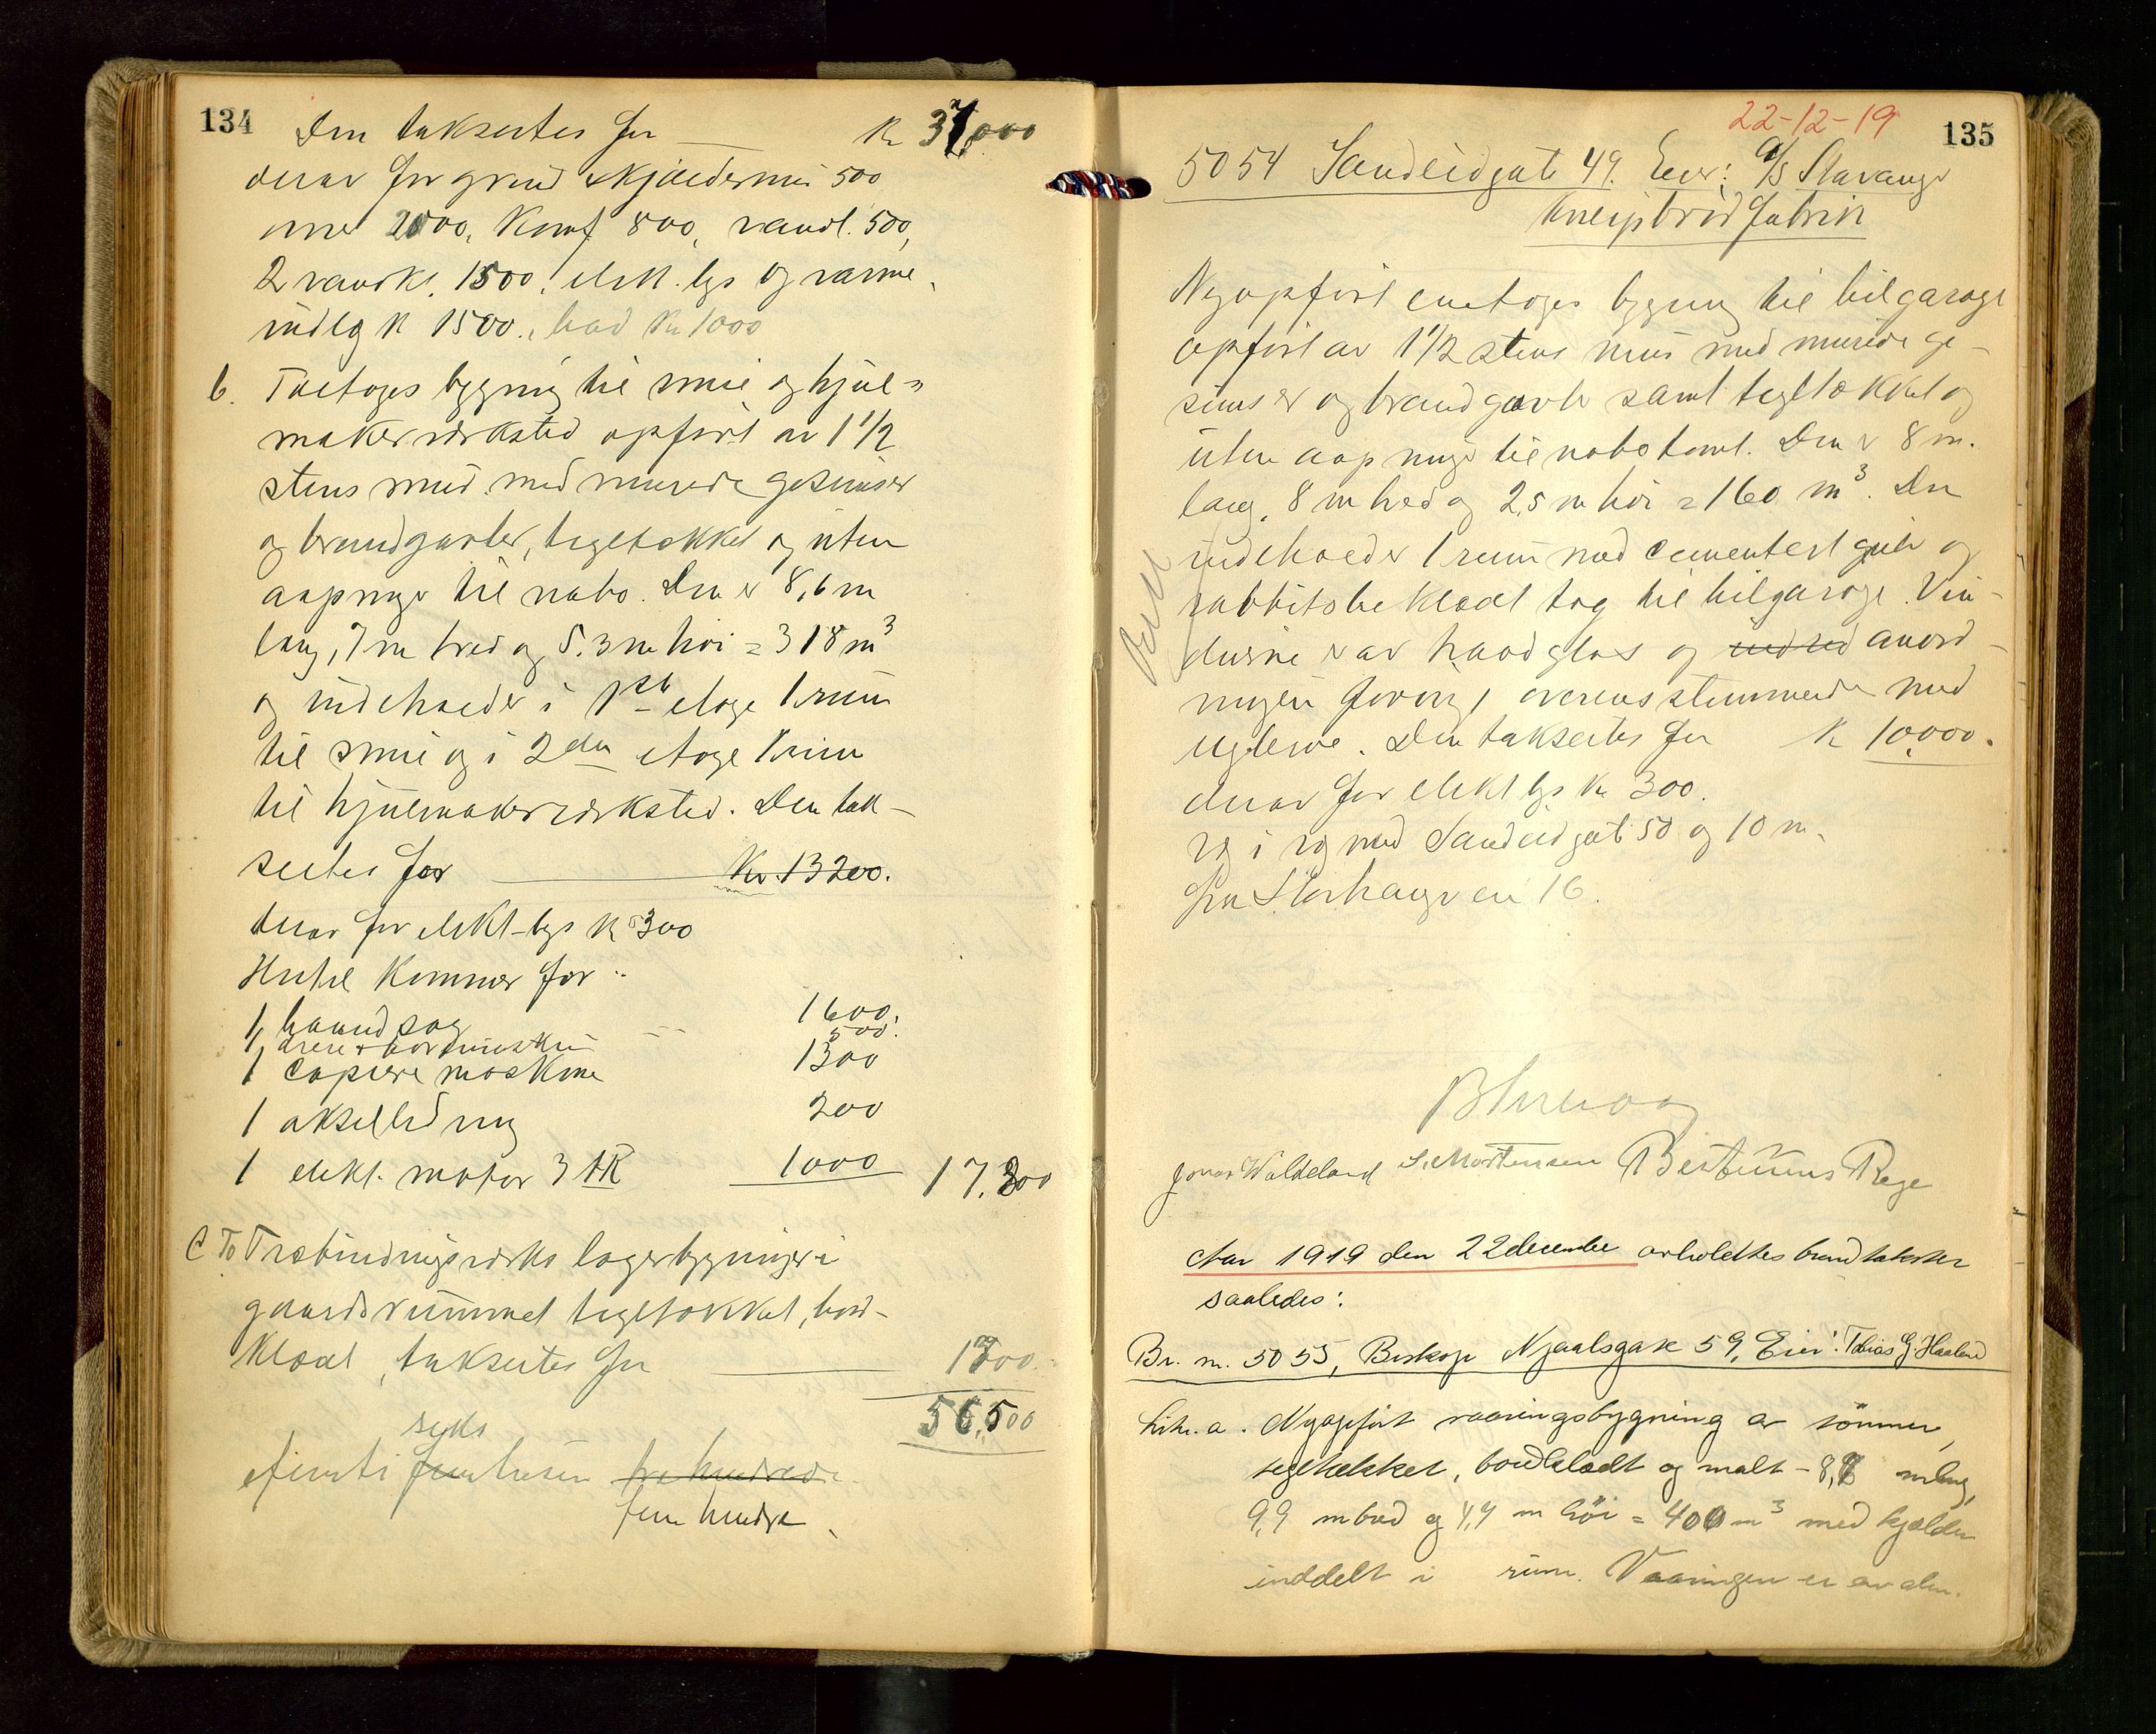 134
Den takseres for Kr 37,000
derav for grund & kjældermur 500
ovner 2000, Komf. 800, vandl. 500,
2 vandkl. 1500, elek. lys og varme
indlg kr 1500., bad Kr 1000
b. Toetages bygning til smie og hjul=
makerverksted opført av 1 1/2
stens mur med murede gesimser
og brandgavler, tegltækket og uten
aapninger til nabo. Den er 8,6 m
lang, 7 m bred og 5.3 m høi = 318 m³
og indeholder i 1ste etage 1 rum
til smie og i 2den etage 1 rum
til hjulmakerverksted. Den tak-
seres for Kr. 13200.
derav for elekt-lys kr 300
Hertil kommer for:
1 baandsag 1600.
1 boremaskin 500.
1 Copiere maskine 1300
1 akselledning 200
1 elekt. motor 3 HK 1000 17.300
C To Træbindingsverks lagerbygninger i
gaardsrummet tegltækket, bord-
klædt, takseres for 1700.
56,500
seks
femti fem tusen tre hundrede
fem hundre
22-12-19
135
5054 Sandeidgate 49. Eier: A/S Stavanger
Kneipbrødfabrik
Nyopført enetages bygning til bilgarage
opført av 1 1/2 stens mur med murede ge-
simser og brandgavle samt tegltækket og
uten aapninger til nabotomt. Den er 8 m.
lang, 8 m bred og 2,5 m høi = 160 m³. Den
indeholder 1 rum med cementert gulv og
rabbitsbeklædt tag til bilgarage. Vin-
duerne er av traadglas og anord-
ningen forøvrig overensstemmende med
reglerne. Den takseres for Kr 10,000.
derav for elekt lys kr 300.
ryg i ryg med Sandeidgate 50 og 10 m.
fra Storhaugveien 16.
Jonas Waldeland S. Mortensen Bertinius Rege
Aar 1919 den 22 december avholdtes brandtakster
saaledes:
Br. nr. 5055, Biskop Njaalsgate 59, Eier: Tobias G. Haaland
Litr. a. Nyopført vaaningsbygning av tømmer,
tegltækket, bordklædt og malt - 8,7 m lang,
9,9 m bred og 4,4 m høi = 400 m³ med kjælder
inddelt i rum. Vaaningen er av alm.